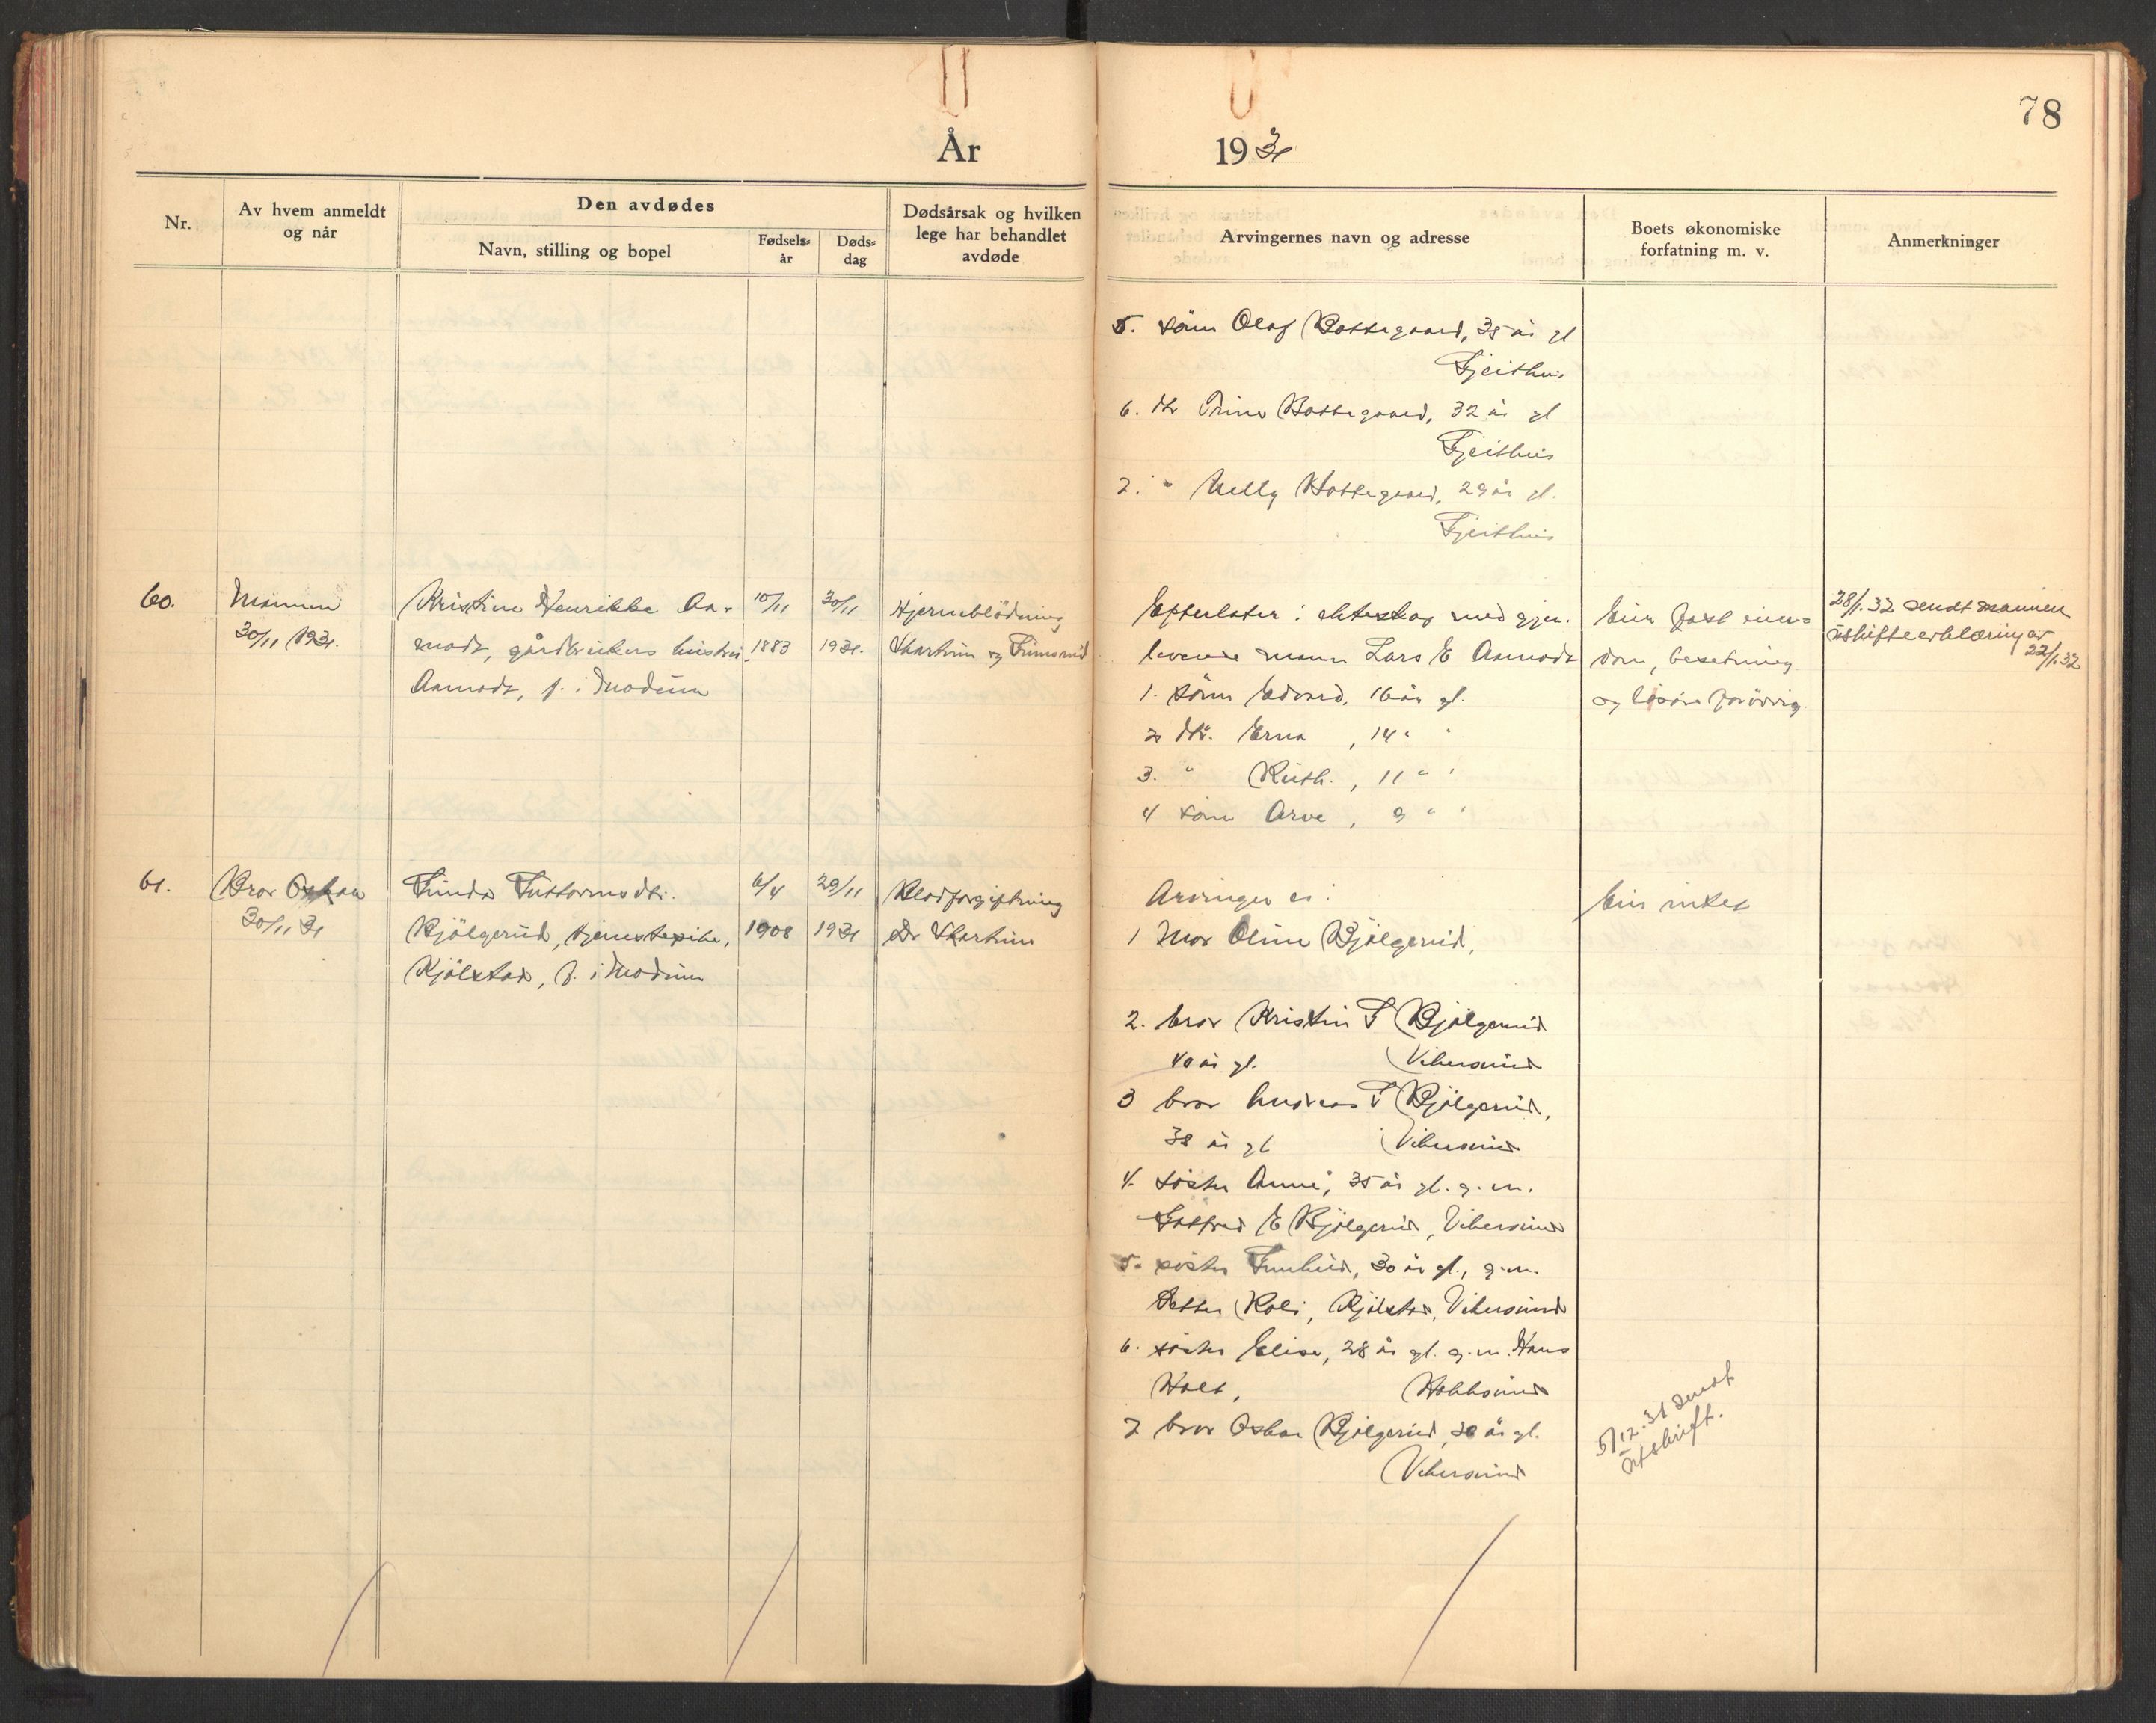 78
År 1931
Nr.
Av hvem anmeldt og når
Den avdødes
Navn, stilling og bopel
Fødsels-år
Døds-dag
Dødsårsak og hvilken lege har behandlet avdøde
Arvingernes navn og adresse
Boets økonomiske forfatning m. v.
Anmerkninger
5. sönn Olaf Bottegaard, 35 år gl
Gjeithus
6. dtr Trine Bottegaard, 32 år gl
Gjeithus
7. " Nelly Bottegaard, 29 år gl.
Gjeithus
60.
Mannen
30/11 1931.
Kristine Henrikke Aa-
modt, gårdbrukers hustru,
Aamodt, f. i Modum
10/11
1883
30/11
1931.
Hjerneblödning
Skartum og
Efterlater i ekteskap med gjen-
levende mann Lars E Aamodt
1. sönn Edvard, 16 år gl.
2 dtr. Erna, 14 " "
3. " Ruth., 11 " "
4 sönn Arve, 9 " "
Eier fast eien-
dom, besetning
og lösöre forövrig
28/1.32 sendt mannen
uskifteerklæring av
22/1.32
61.
Bror Oskar
30/11 31
Guttormsdtr.
Bjölgerud, tjenestepike,
Kjölstad, f. i Modum
6/4
1908
29/11
1931
Blodforgiftning
Dr Skartum
Arvinger er:
1 Mor Oline Bjölgerud,
2. bror Kristin G Bjölgerud
40 år gl. Vikersund
3 bror Andreas G Bjölgerud,
38 år gl Vikersund
4. söster Anne, 35 år gl. g.m.
Gotfred E Bjölgerud, Vikersund
5. söster Gunhild, 30 år gl., g.m.
Petter Koli, Kjölstad, Vikersund
6. söster Elise, 28 år gl. g.m. Hans
Holt, Hokksund
7 bror Oskar Bjölgerud, 20 år gl.
Vikersund
Eier intet
5/12.31 sendt
utskrift.